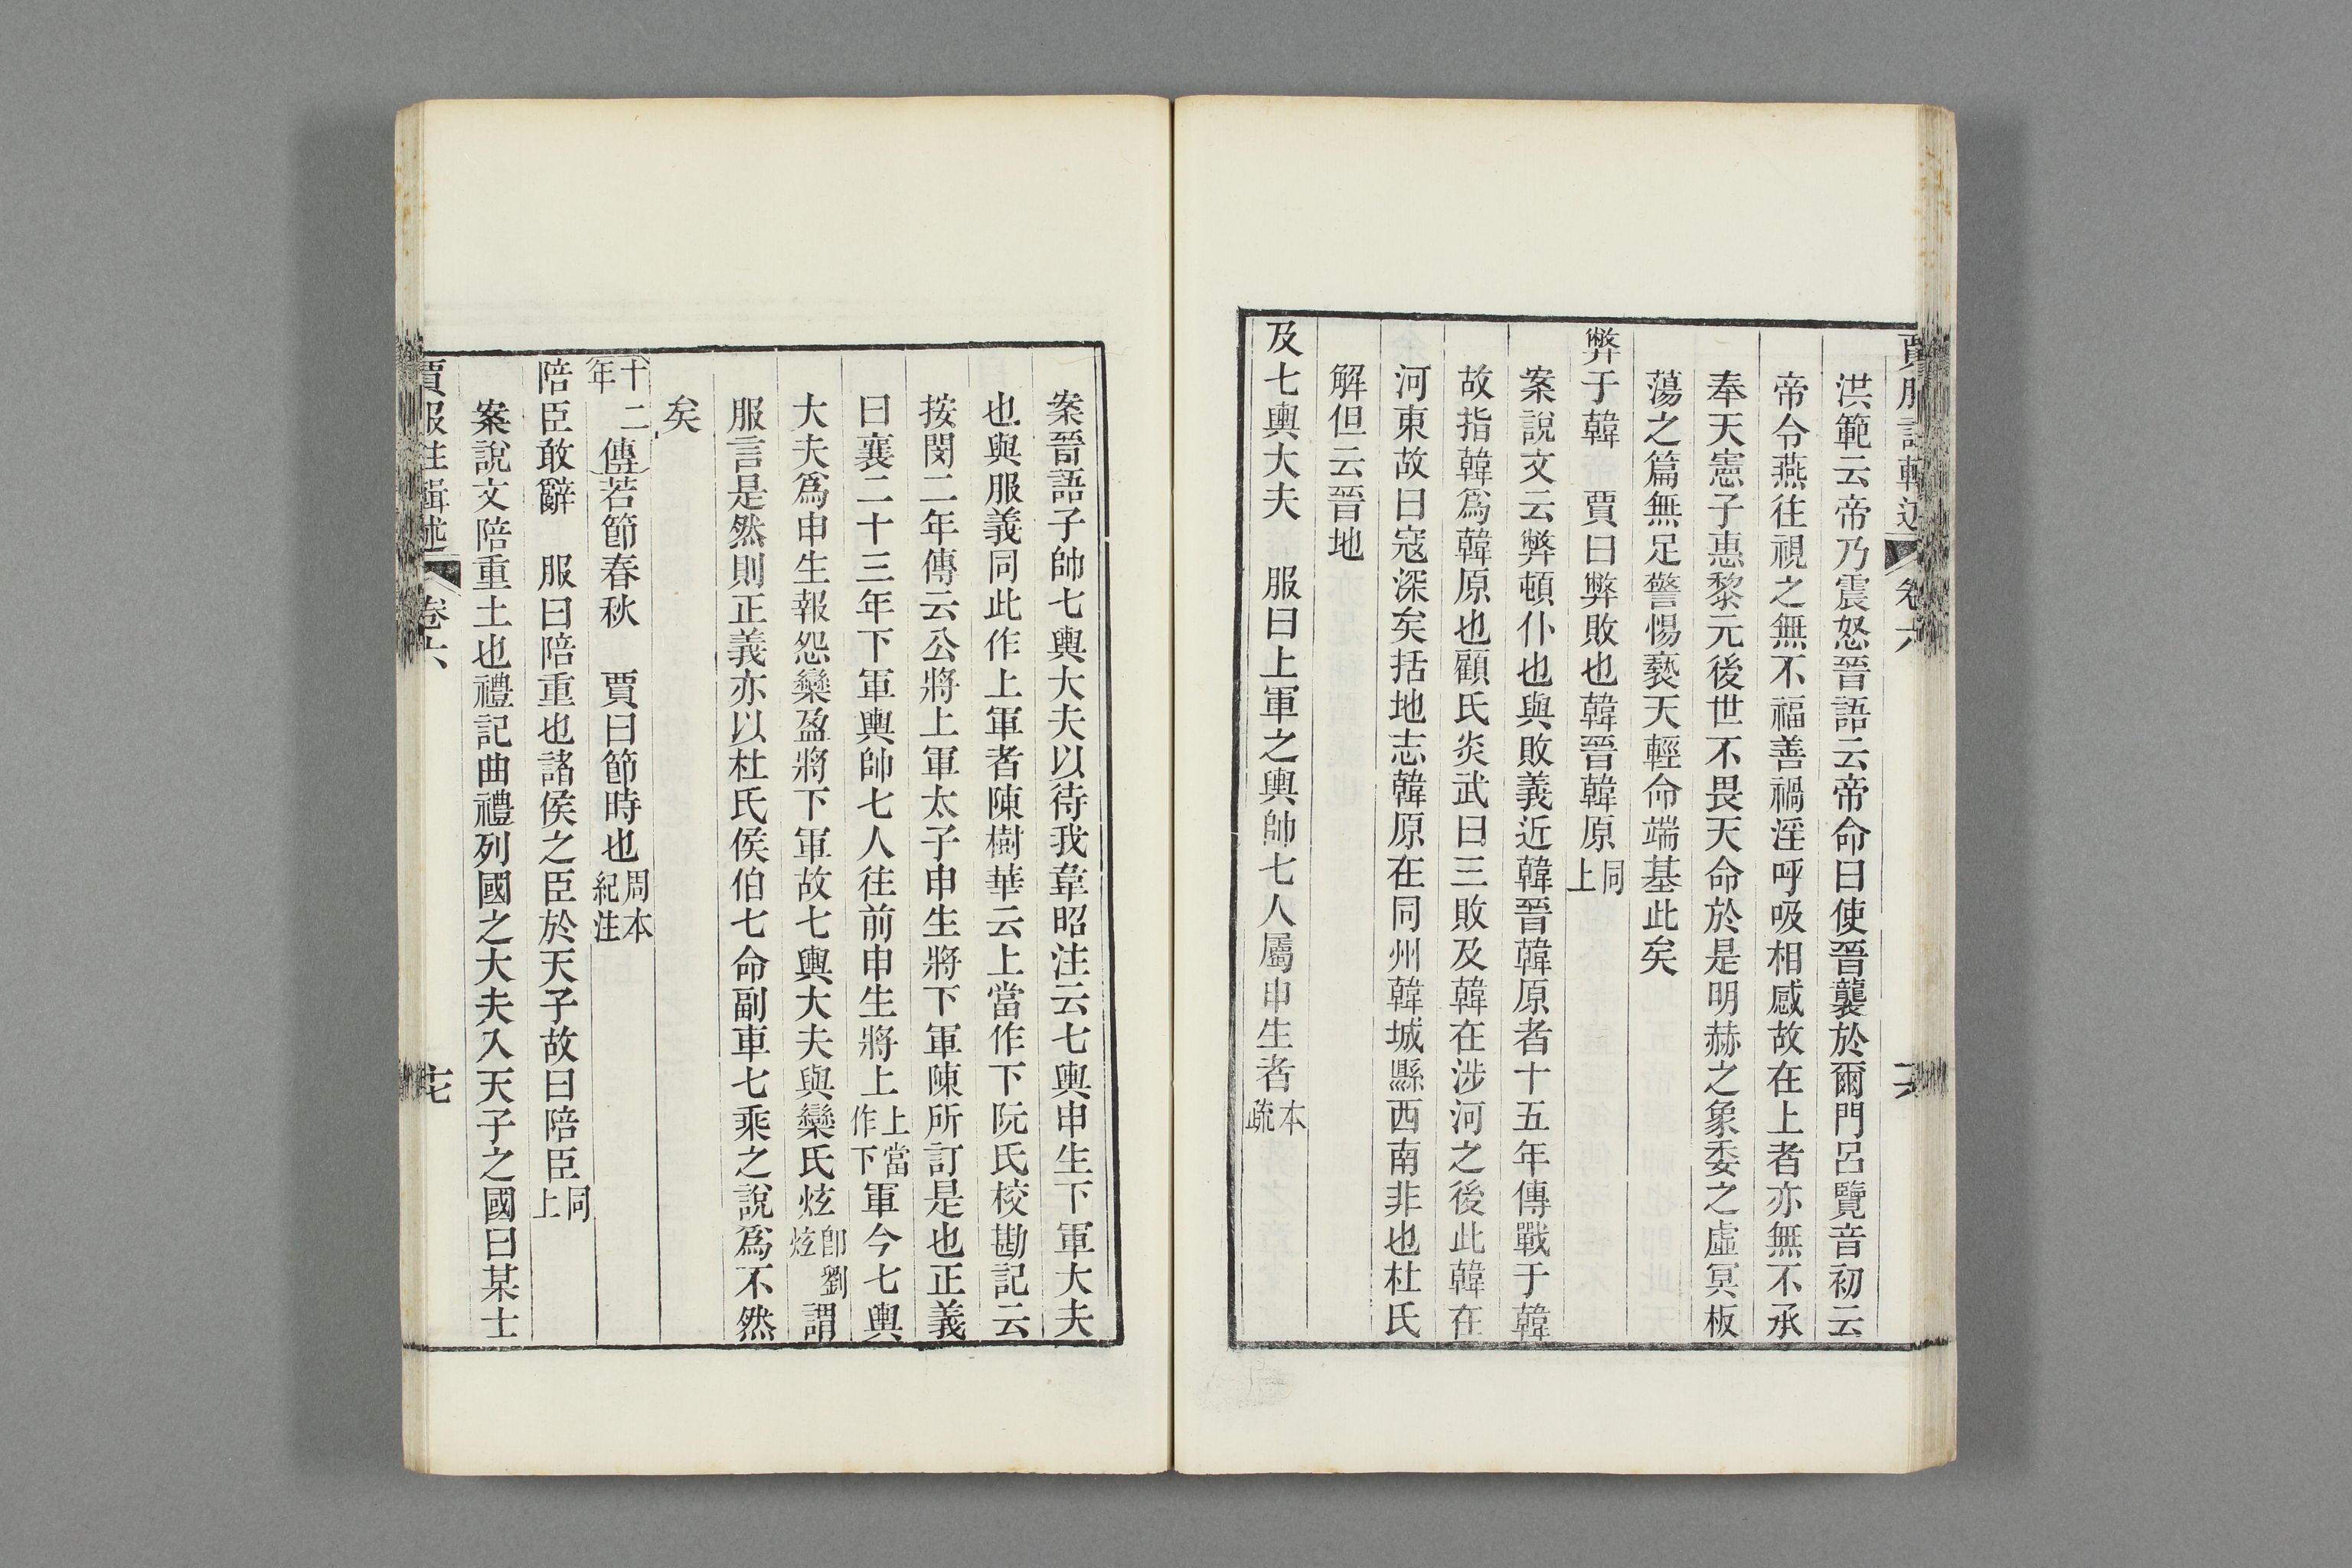 賈服註輯述 卷六
洪範云帝乃震怒晉語云帝命曰使晉襲於爾門呂覽音初云
帝令燕往視之無不福善禍淫呼吸相感故在上者亦無不承
奉天憲子惠黎元後世不畏天命於是明赫之象委之虛冥板
蕩之篇無足警惕褻天輕命端基此矣
弊于韓 賈曰弊敗也韓晉韓原同上
案說文云弊頓仆也與敗義近韓晉韓原者十五年傳戰于韓
故指韓爲韓原也顧氏炎武曰三敗及韓在涉河之後此韓在
河東故曰寇深矣括地志韓原在同州韓城縣西南非也杜氏
解但云晉地
及七輿大夫 服曰上軍之輿帥七人屬申生者本疏
案晉語子帥七輿大夫以待我韋昭注云七輿申生下軍大夫
也與服義同此作上軍者陳樹華云上當作下阮氏校勘記云
按閔二年傳云公將上軍太子申生將下軍陳所訂是也正義
曰襄二十三年下軍輿帥七人往前申生將上上當作下軍今七輿
大夫爲申生報怨欒盈將下軍故七輿大夫與欒氏炫卽劉炫謂
服言是然則正義亦以杜氏侯伯七命副車七乘之說爲不然
矣
十二年傳若節春秋 賈曰節時也周本紀注
陪臣敢辭 服曰陪重也諸侯之臣於天子故曰陪臣同上
案說文陪重土也禮記曲禮列國之大夫入天子之國曰某士
賈服注輯述 卷六 十七